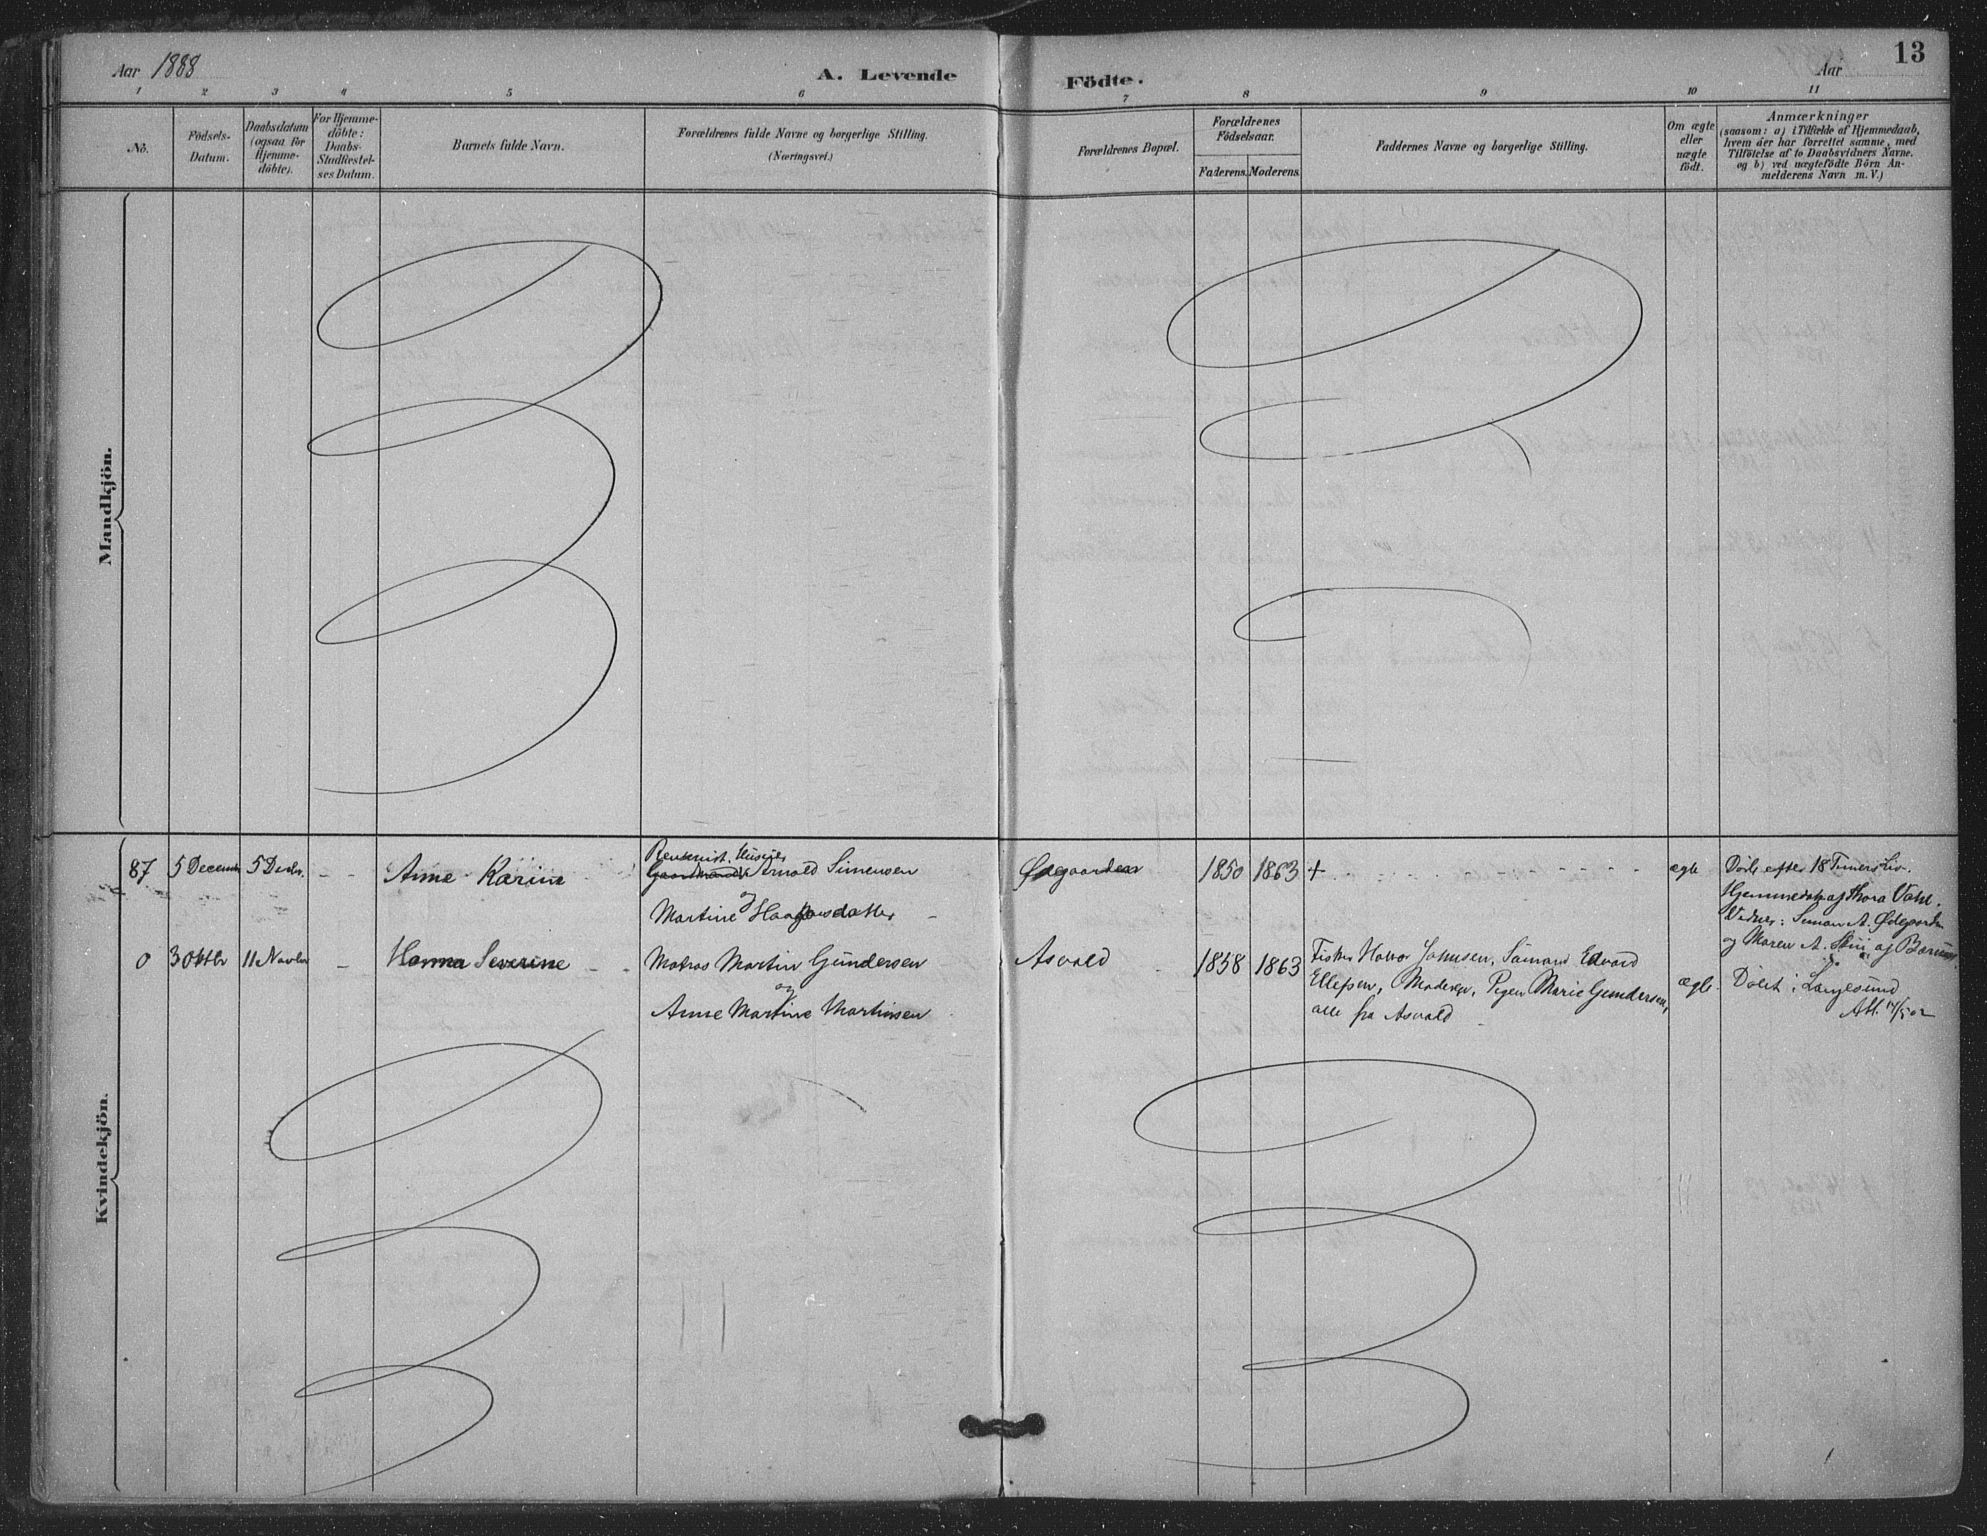 Aar 1888
A. Levende Födte.
Aar
13
1 2 3 4 5 6 7 8 9 10 11
No.
Födsels-
Datum.
Daabsdatum
(ogsaa for
Hjemme-
döbte).
For Hjemme-
döbte:
Daabs-
Stadfæstel-
ses Datum.
Barnets fulde Navn.
Forældrenes fulde Navne og borgerlige Stilling.
(Næringsvei.)
Forældrenes Bopæl.
Forældrenes
Födselsaar.
Faderens. Moderens.
Faddernes Navne og borgerlige Stilling.
Om ægte
eller
uægte
födt.
Anmærkninger
(saasom: a) i Tilfælde af Hjemmedaab,
hvem der har forrettet samme, med
Tilföielse af to Daabsvidners Navne,
og b) ved uægtefödte Börn An-
melderens Navn m. V.)
Mandkjön.
Kvindekjön.
87 5 Decemb 5 Decbr. - - Anne Karine
Husejer
Gaardmand Arnold Simensen
og
Martine Haagensdatter
Ødegaarden 1850 1863 + ægte
Døde efter 18 Timers Liv.
Hjemmedøbt af Thora Vahl.
Vidner: Simon A. Ødegaarden
og Maren A. af
0 3 Oktbr 11 Novbr - Hanna Severine - -
Matros Martin Gundersen
og
Anne Martine Martinsen
Asvald 1858 1863
Fisker Halvor Johnsen, Sømand Edvard
Ellefsen, Moderen, Pigen Marie Gundersen,
alle fra Asvald
ægte.
Døbt i Langesund
Att.